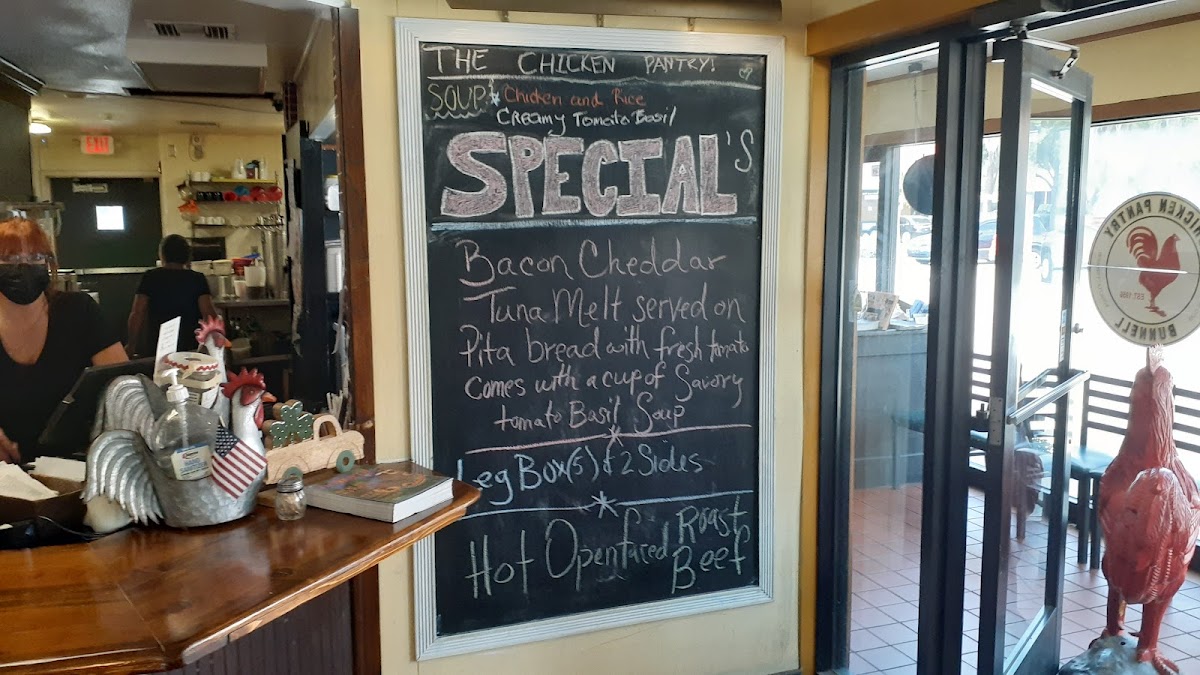 THE CHICKEN PANTRY!
SOUP: Chicken and Rice
Creamy Tomato Basil
SPECIAL'S
Bacon Cheddar
Tuna Melt served on
Pita bread with fresh tomato
Comes with a cup of Savory
tomato Basil Soup
Leg Box(5) & 2 Sides
Hot Openfaced Roast
Beef
EXIT
CHICKEN PANTRY
EST 1986
BUNNELL